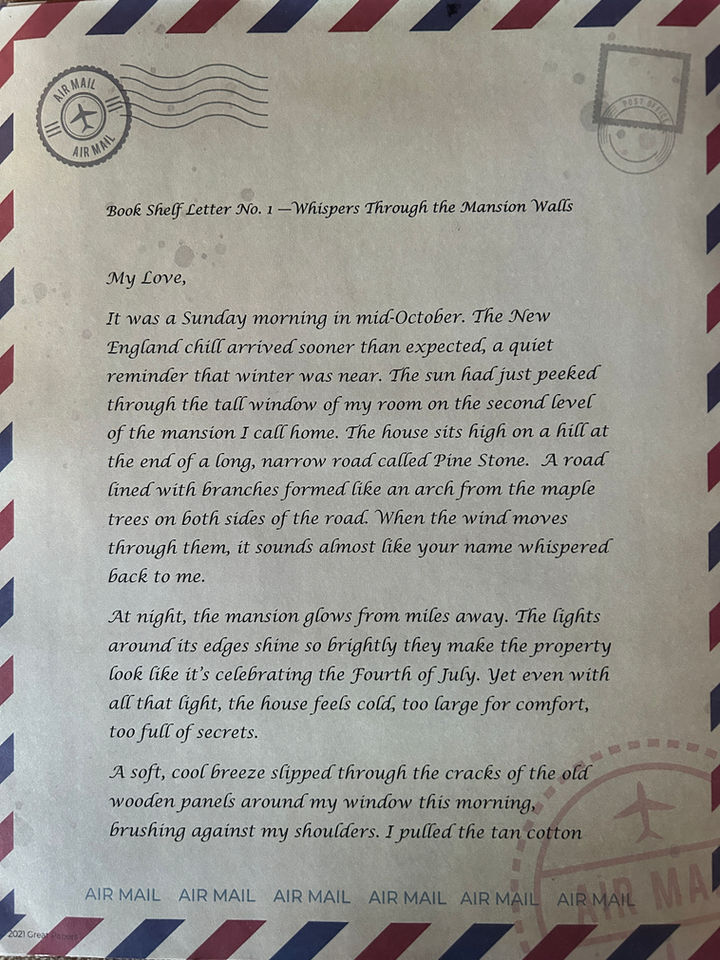 AIR MAIL
AIR MAIL
POST OFFICE
Book Shelf Letter No. 1 —Whispers Through the Mansion Walls
My Love,
It was a Sunday morning in mid-October. The New
England chill arrived sooner than expected, a quiet
reminder that winter was near. The sun had just peeked
through the tall window of my room on the second level
of the mansion I call home. The house sits high on a hill at
the end of a long, narrow road called Pine Stone.  A road
lined with branches formed like an arch from the maple
trees on both sides of the road. When the wind moves
through them, it sounds almost like your name whispered
back to me.
At night, the mansion glows from miles away. The lights
around its edges shine so brightly they make the property
look like it's celebrating the Fourth of July. Yet even with
all that light, the house feels cold, too large for comfort,
too full of secrets.
A soft, cool breeze slipped through the cracks of the old
wooden panels around my window this morning,
brushing against my shoulders. I pulled the tan cotton
AIR MA
AIR MAIL AIR MAIL AIR MAIL AIR MAIL AIR MAIL AIR MAIL
2021 Great Papers!